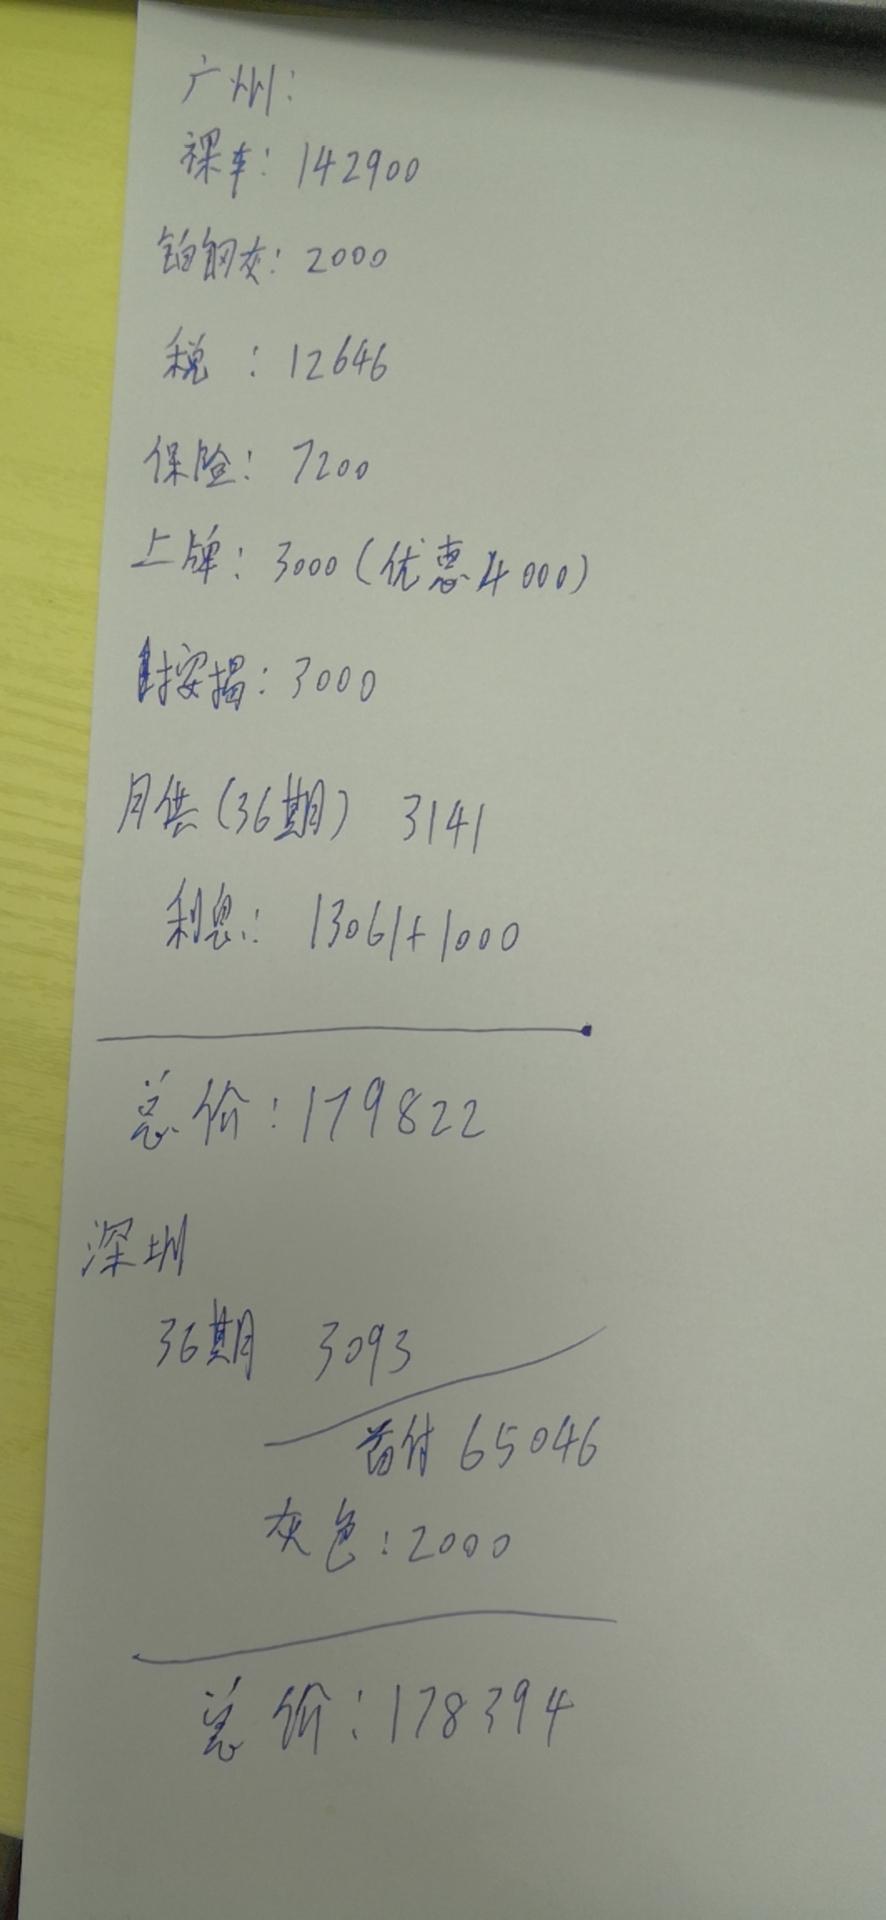 广州:
裸车: 142900
铂钢灰: 2000
税 : 12646
保险: 7200
上牌: 3000(优惠4000)
按揭: 3000
月供(36期) 3141
利息: 13061+1000
总价: 179822
深圳
36期 3093
首付 65046
灰色: 2000
总价: 178394